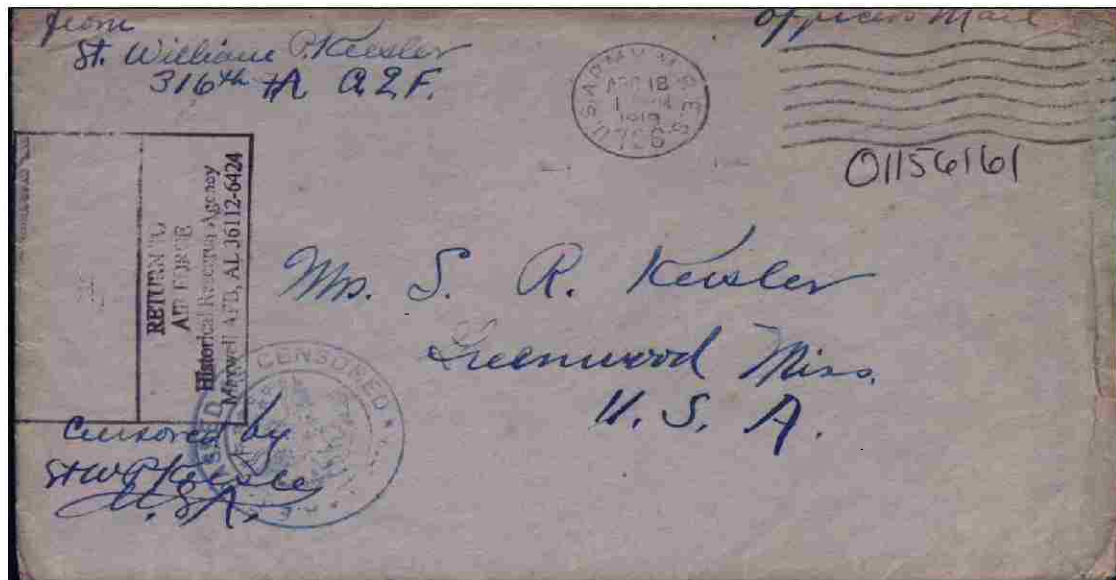 from
Lt. William P. Keesler
316th FA A.E.F.
Officers Mail
U.S. ARMY M.P.E.S.
APR 18
1919
01156161
RETURN TO
AIR FORCE
Historical Research Agency
Maxwell AFB, AL 36112-6424
Mrs. S. R. Keesler
Greenwood Miss.
U. S. A.
CENSORED
Censored by
Lt W P Keesler
U.S.A.